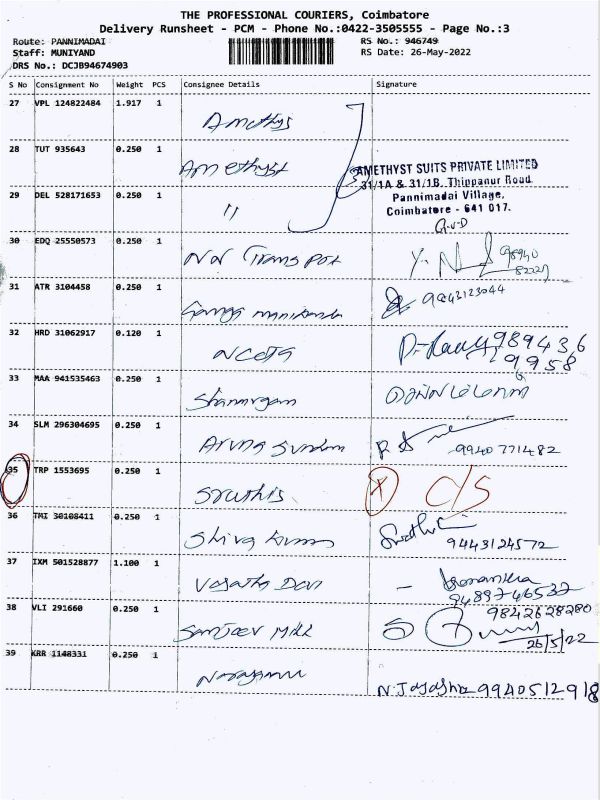 THE PROFESSIONAL COURIERS, Coimbatore
Delivery Runsheet - PCM - Phone No.:0422-3505555 - Page No.:3
Route: PANNIMADAI RS No.: 946749
Staff: MUNIYAND RS Date: 26-May-2022
DRS No.: DCJB94674903
S No Consignment No Weight PCS Consignee Details Signature
27 VPL 124822484 1.917 1
Amethys
28 TUT 935643 0.250 1
Amethyst AMETHYST SUITS PRIVATE LIMITED
31/1A & 31/1B, Thippanur Road
29 DEL 528171653 0.250 1 Pannimadai Village,
" Coimbatore - 641 017.
30 EDQ 25550573 0.250 1
Transport
31 ATR 3104458 0.250 1
9443123044
32 HRD 31062917 0.120 1
989436
9958
33 MAA 941535463 0.250 1
Shanmugam
34 SLM 296304695 0.250 1
Aruna Sundam 9940771482
35 TRP 1553695 0.250 1
Sruthis C/S
36 TMI 30108411 0.250 1
Shiva Kumar 9443124572
37 IXM 501528877 1.100 1
9489746537
38 VLI 291660 0.250 1 9842628280
Sanjeev Mill
26/5/22
39 KRR 1148331 0.250 1
9940512918